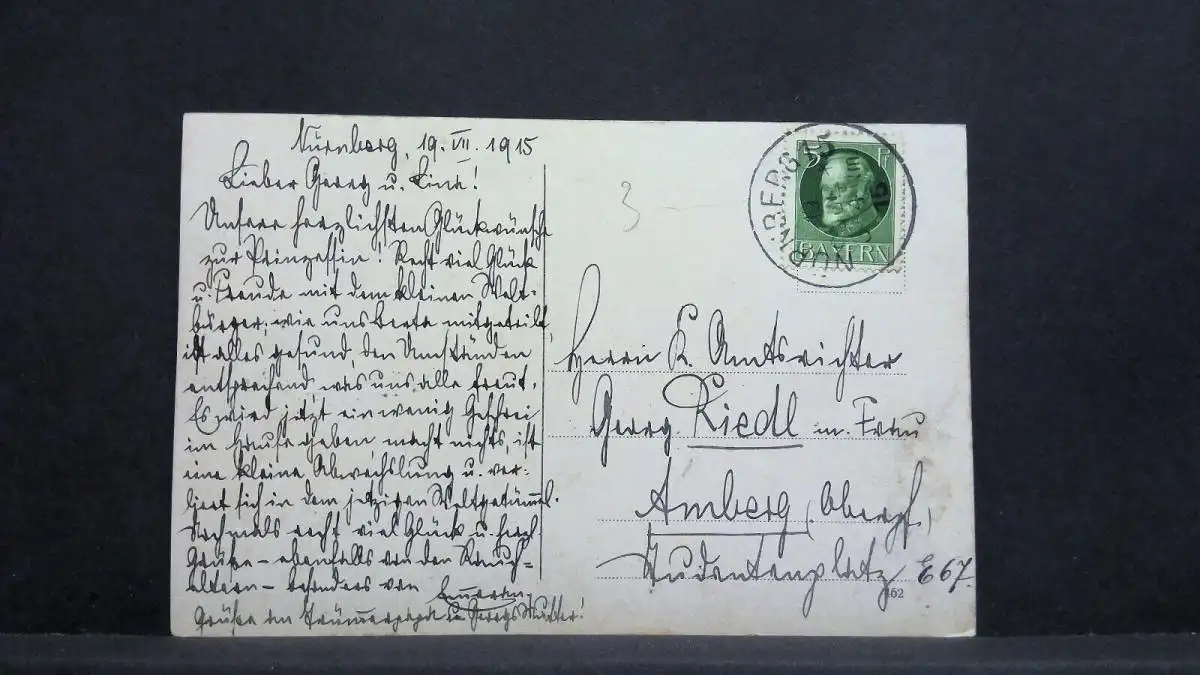 Nürnberg, 19. VII. 1915
Lieber Georg u. Lina!
Unsere herzlichsten Glückwünsche
zur Prinzessin! Recht viel Glück
u. Freude mit dem kleinen Welt-
bürger, wie uns Berta mitgeteilt,
ist alles gesund, den Umständen
entsprechend, was uns alle freut.
Es wird jetzt ein wenig Geschrei
im Hause geben macht nichts, ist
eine kleine Abwechslung u. ver-
liert sich in dem jetzigen Weltgetümmel.
Nochmals recht viel Glück u. herzl
Grüße – ebenfalls von den
eltern – besonders von
Grüße an u. Georgs Mutter!
3
5 Pf
BAYERN
NÜRNBERG 15
Herrn K. Amtsrichter
Georg Riedl m. Frau
Amberg (Oberpf.)
Studentenplatz E 67.
162